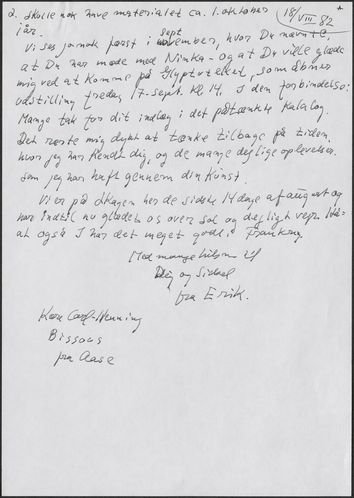 2. skulle nok have materialet ca. 1. oktober
18/VIII 82
i år.
Vi ses jo nok først i sept
november, hvor Du nævnte,
at Du har møde med Ninka - og at Du ville glæde
mig ved at komme på Glyptoteket, som åbner
udstilling fredag 17. sept. kl. 14. I den forbindelse:
Mange tak for dit indlæg i det påtænkte katalog.
Det rørte mig dybt at tænke tilbage på tiden
hvor jeg har kendt dig, og de mange dejlige oplevelser,
som jeg har haft gennem din kunst.
Vi er på Skagen her de sidste 14 dage af august og
har indtil nu glædet os over sol og dejligt vejr.
at også I har det meget godt i Frankrig
Med mange hilsner til
Dig og Sidsel
fra Erik.
Kære Carl-Henning
Bissous
fra Aase